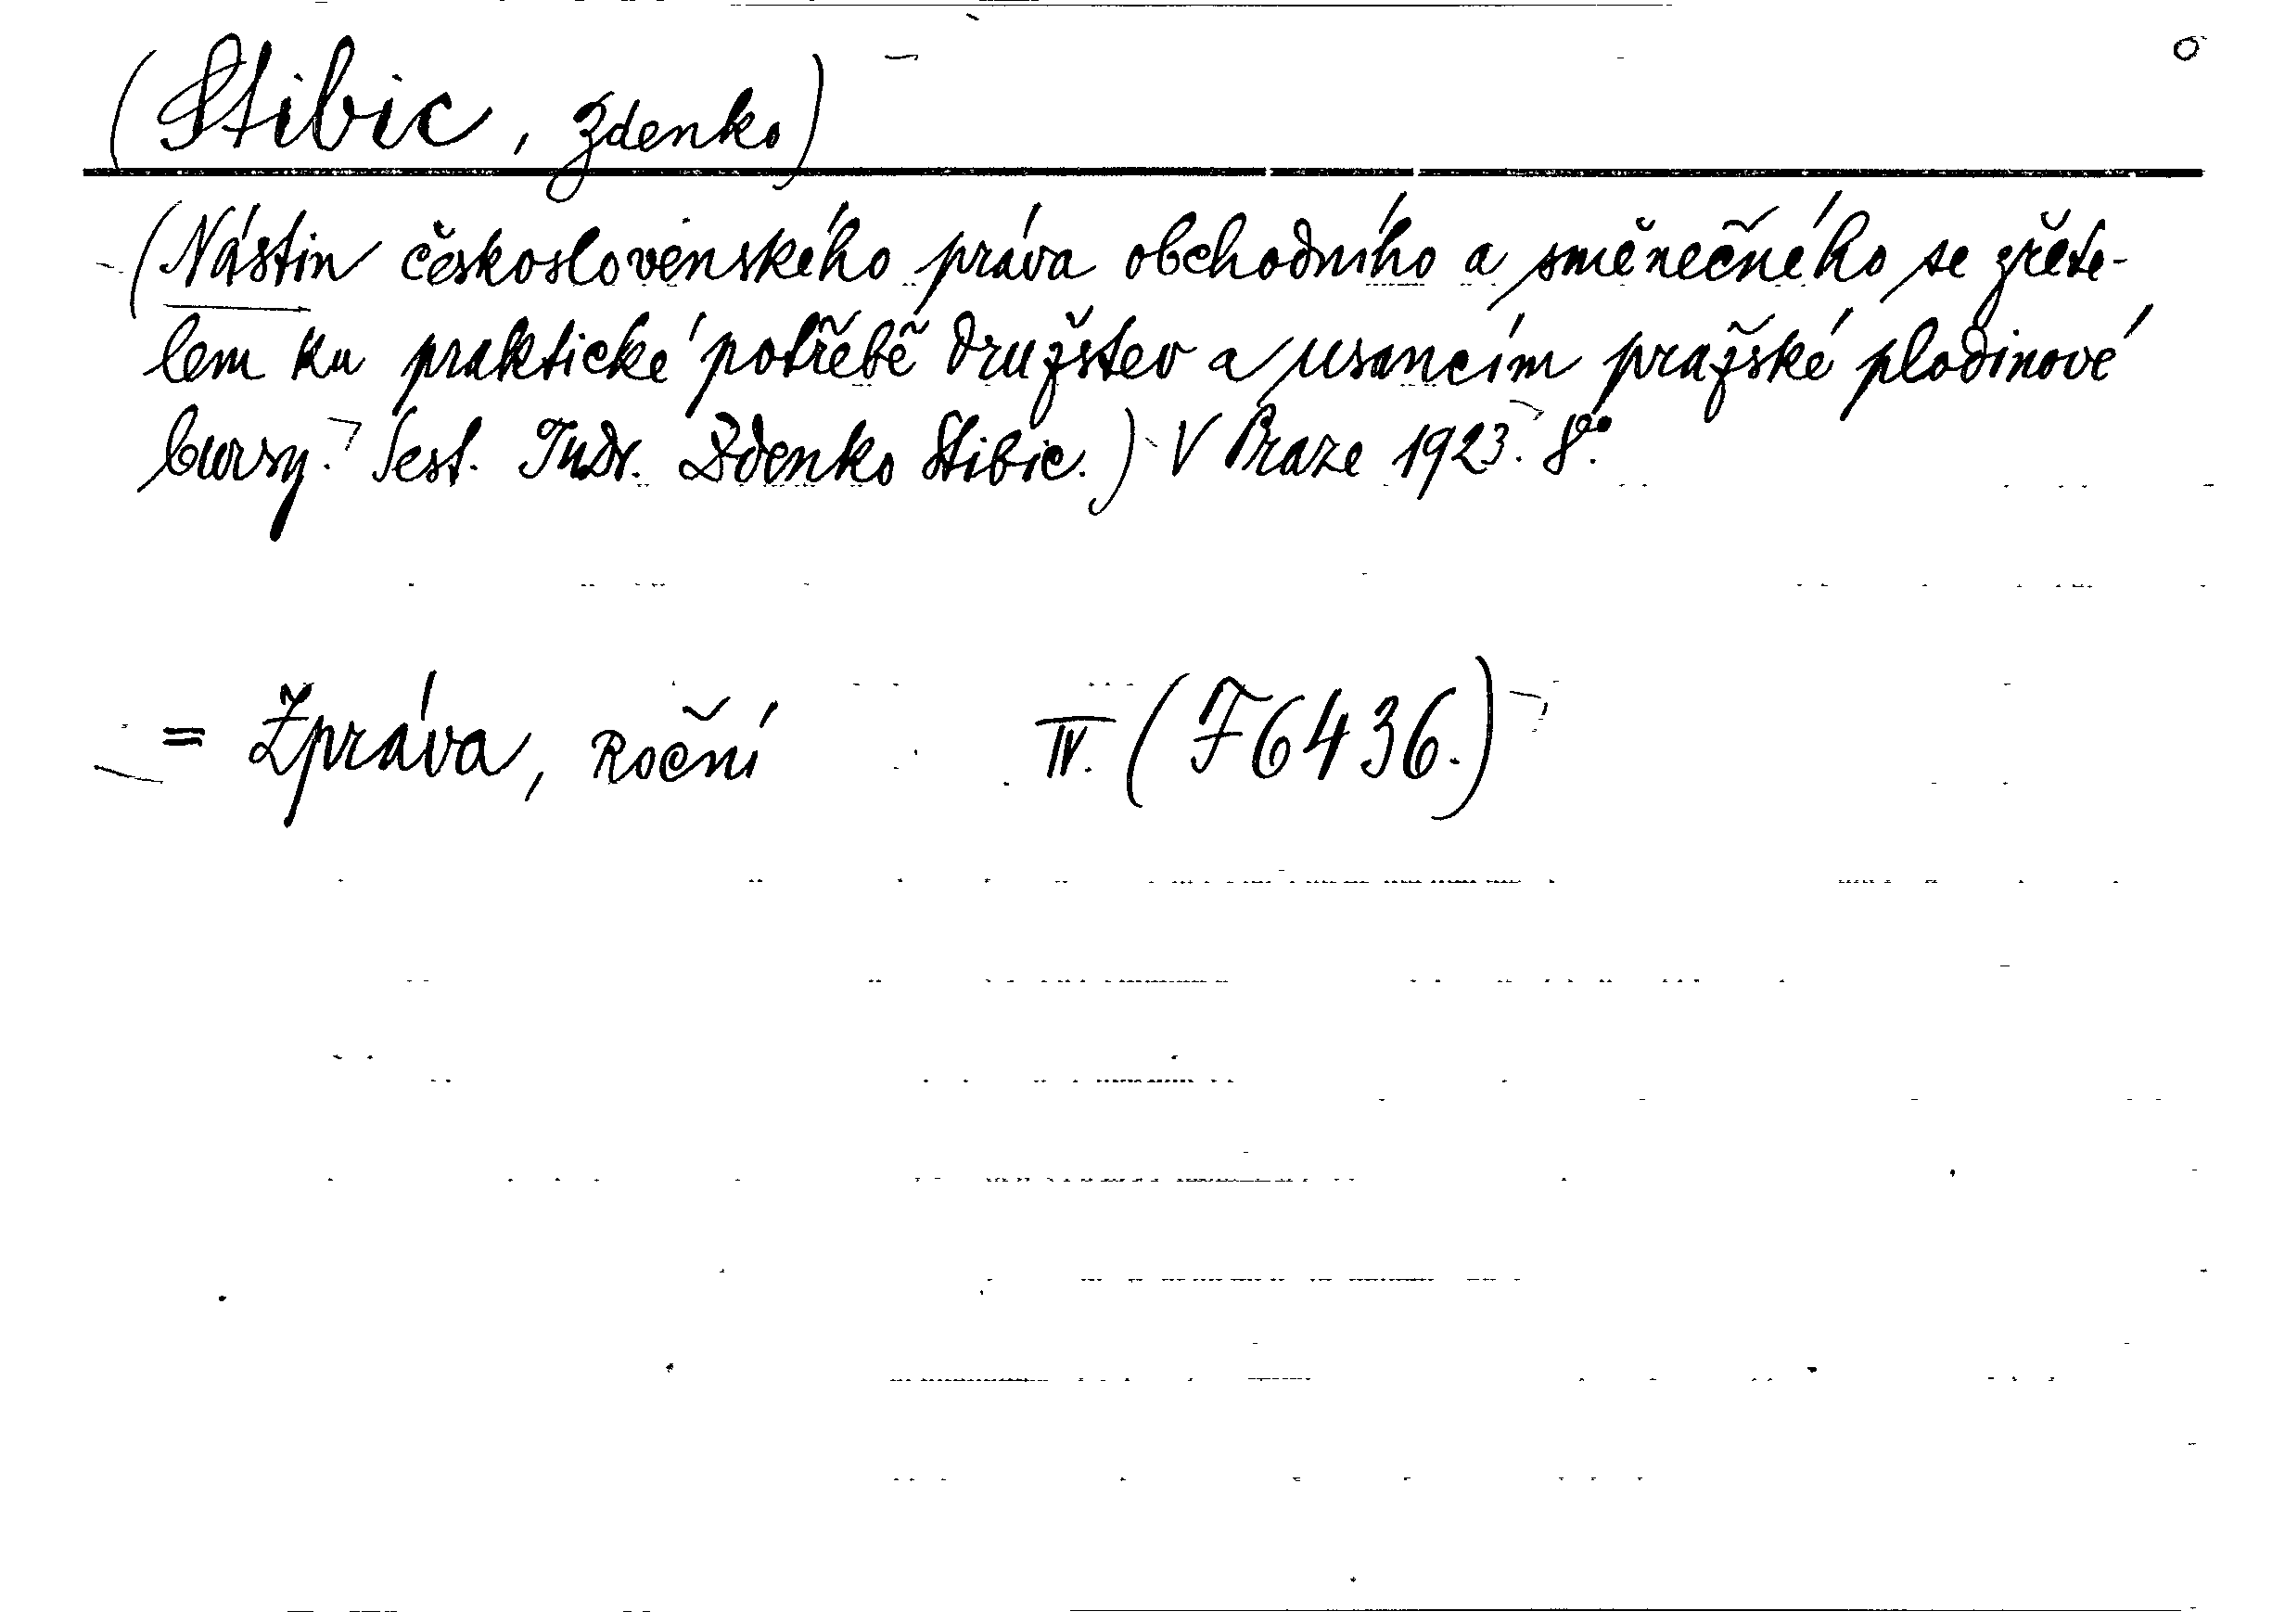 (Stibic, Zdenko)
(Nástin československého práva obchodního a směnečného se zřete-
lem ku praktické potřebě družstev a usancím pražské plodinové
bursy. Sest. Judr. Zdenko Stibic.) V Praze 1923. 8°.
= Zpráva, Roční IV. (F6436.)